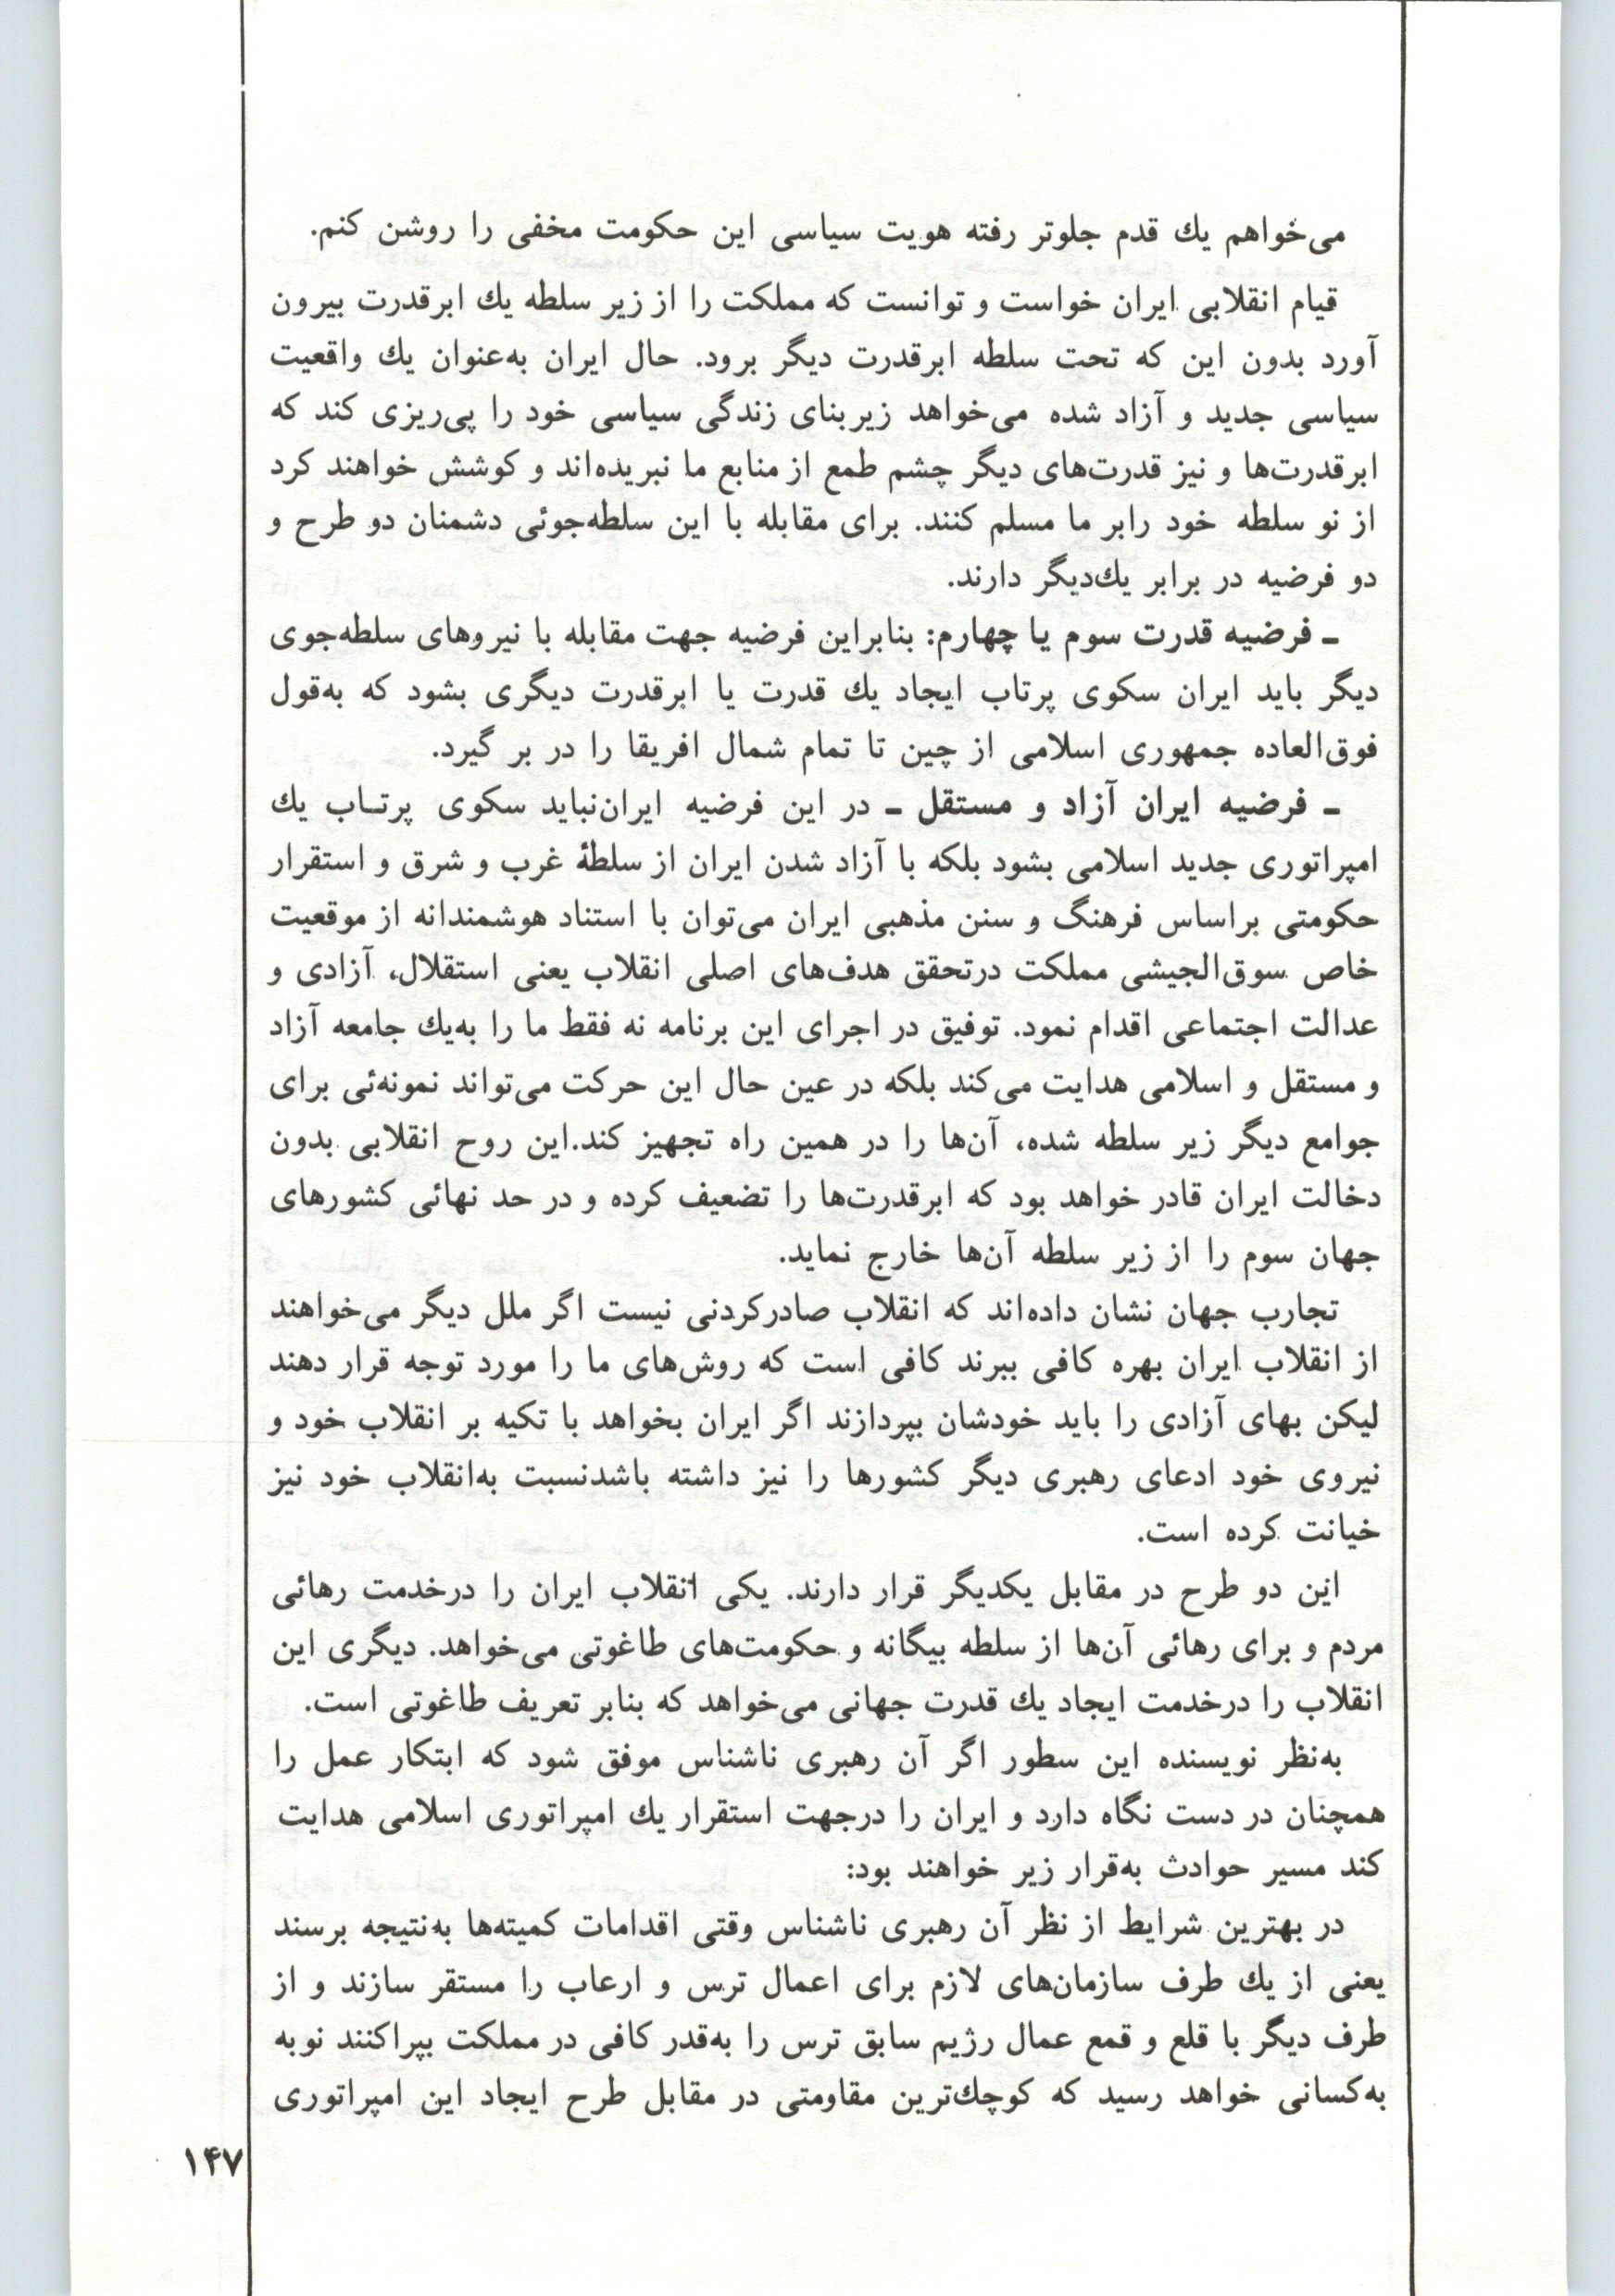 می‌خواهم یك قدم جلوتر رفته هویت سیاسی این حکومت مخفی را روشن کنم.
قیام انقلابی ایران خواست و توانست که مملکت را از زیر سلطه یك ابرقدرت بیرون
آورد بدون این که تحت سلطه ابرقدرت دیگر برود. حال ایران به‌عنوان یك واقعیت
سیاسی جدید و آزاد شده می‌خواهد زیربنای زندگی سیاسی خود را پی‌ریزی کند که
ابرقدرت‌ها و نیز قدرت‌های دیگر چشم طمع از منابع ما نبریده‌اند و کوشش خواهند کرد
از نو سلطه خود رابر ما مسلم کنند. برای مقابله با این سلطه‌جوئی دشمنان دو طرح و
دو فرضیه در برابر یك‌دیگر دارند.
ـ فرضیه قدرت سوم یا چهارم: بنابراین فرضیه جهت مقابله با نیروهای سلطه‌جوی
دیگر باید ایران سکوی پرتاب ایجاد یك قدرت یا ابرقدرت دیگری بشود که به‌قول
فوق‌العاده جمهوری اسلامی از چین تا تمام شمال افریقا را در بر گیرد.
ـ فرضیه ایران آزاد و مستقل ـ در این فرضیه ایران‌نباید سکوی پرتـاب یك
امپراتوری جدید اسلامی بشود بلکه با آزاد شدن ایران از سلطهٔ غرب و شرق و استقرار
حکومتی براساس فرهنگ و سنن مذهبی ایران می‌توان با استناد هوشمندانه از موقعیت
خاص سوق‌الجیشی مملکت درتحقق هدف‌های اصلی انقلاب یعنی استقلال، آزادی و
عدالت اجتماعی اقدام نمود. توفیق در اجرای این برنامه نه فقط ما را به‌یك جامعه آزاد
و مستقل و اسلامی هدایت می‌کند بلکه در عین حال این حرکت می‌تواند نمونه‌ئی برای
جوامع دیگر زیر سلطه شده، آن‌ها را در همین راه تجهیز کند.این روح انقلابی بدون
دخالت ایران قادر خواهد بود که ابرقدرت‌ها را تضعیف کرده و در حد نهائی کشورهای
جهان سوم را از زیر سلطه آن‌ها خارج نماید.
تجارب جهان نشان داده‌اند که انقلاب صادرکردنی نیست اگر ملل دیگر می‌خواهند
از انقلاب ایران بهره کافی ببرند کافی است که روش‌های ما را مورد توجه قرار دهند
لیکن بهای آزادی را باید خودشان بپردازند اگر ایران بخواهد با تکیه بر انقلاب خود و
نیروی خود ادعای رهبری دیگر کشورها را نیز داشته باشدنسبت به‌انقلاب خود نیز
خیانت کرده است.
این دو طرح در مقابل یکدیگر قرار دارند. یکی انقلاب ایران را درخدمت رهائی
مردم و برای رهائی آن‌ها از سلطه بیگانه و حکومت‌های طاغوتی می‌خواهد. دیگری این
انقلاب را درخدمت ایجاد یك قدرت جهانی می‌خواهد که بنابر تعریف طاغوتی است.
به‌نظر نویسنده این سطور اگر آن رهبری ناشناس موفق شود که ابتکار عمل را
همچنان در دست نگاه دارد و ایران را درجهت استقرار یك امپراتوری اسلامی هدایت
کند مسیر حوادث به‌قرار زیر خواهند بود:
در بهترین شرایط از نظر آن رهبری ناشناس وقتی اقدامات کمیته‌ها به‌نتیجه برسند
یعنی از یك طرف سازمان‌های لازم برای اعمال ترس و ارعاب را مستقر سازند و از
طرف دیگر با قلع و قمع عمال رژیم سابق ترس را به‌قدر کافی در مملکت بپراکنند نوبه
به‌کسانی خواهد رسید که کوچك‌ترین مقاومتی در مقابل طرح ایجاد این امپراتوری
۱۴۷